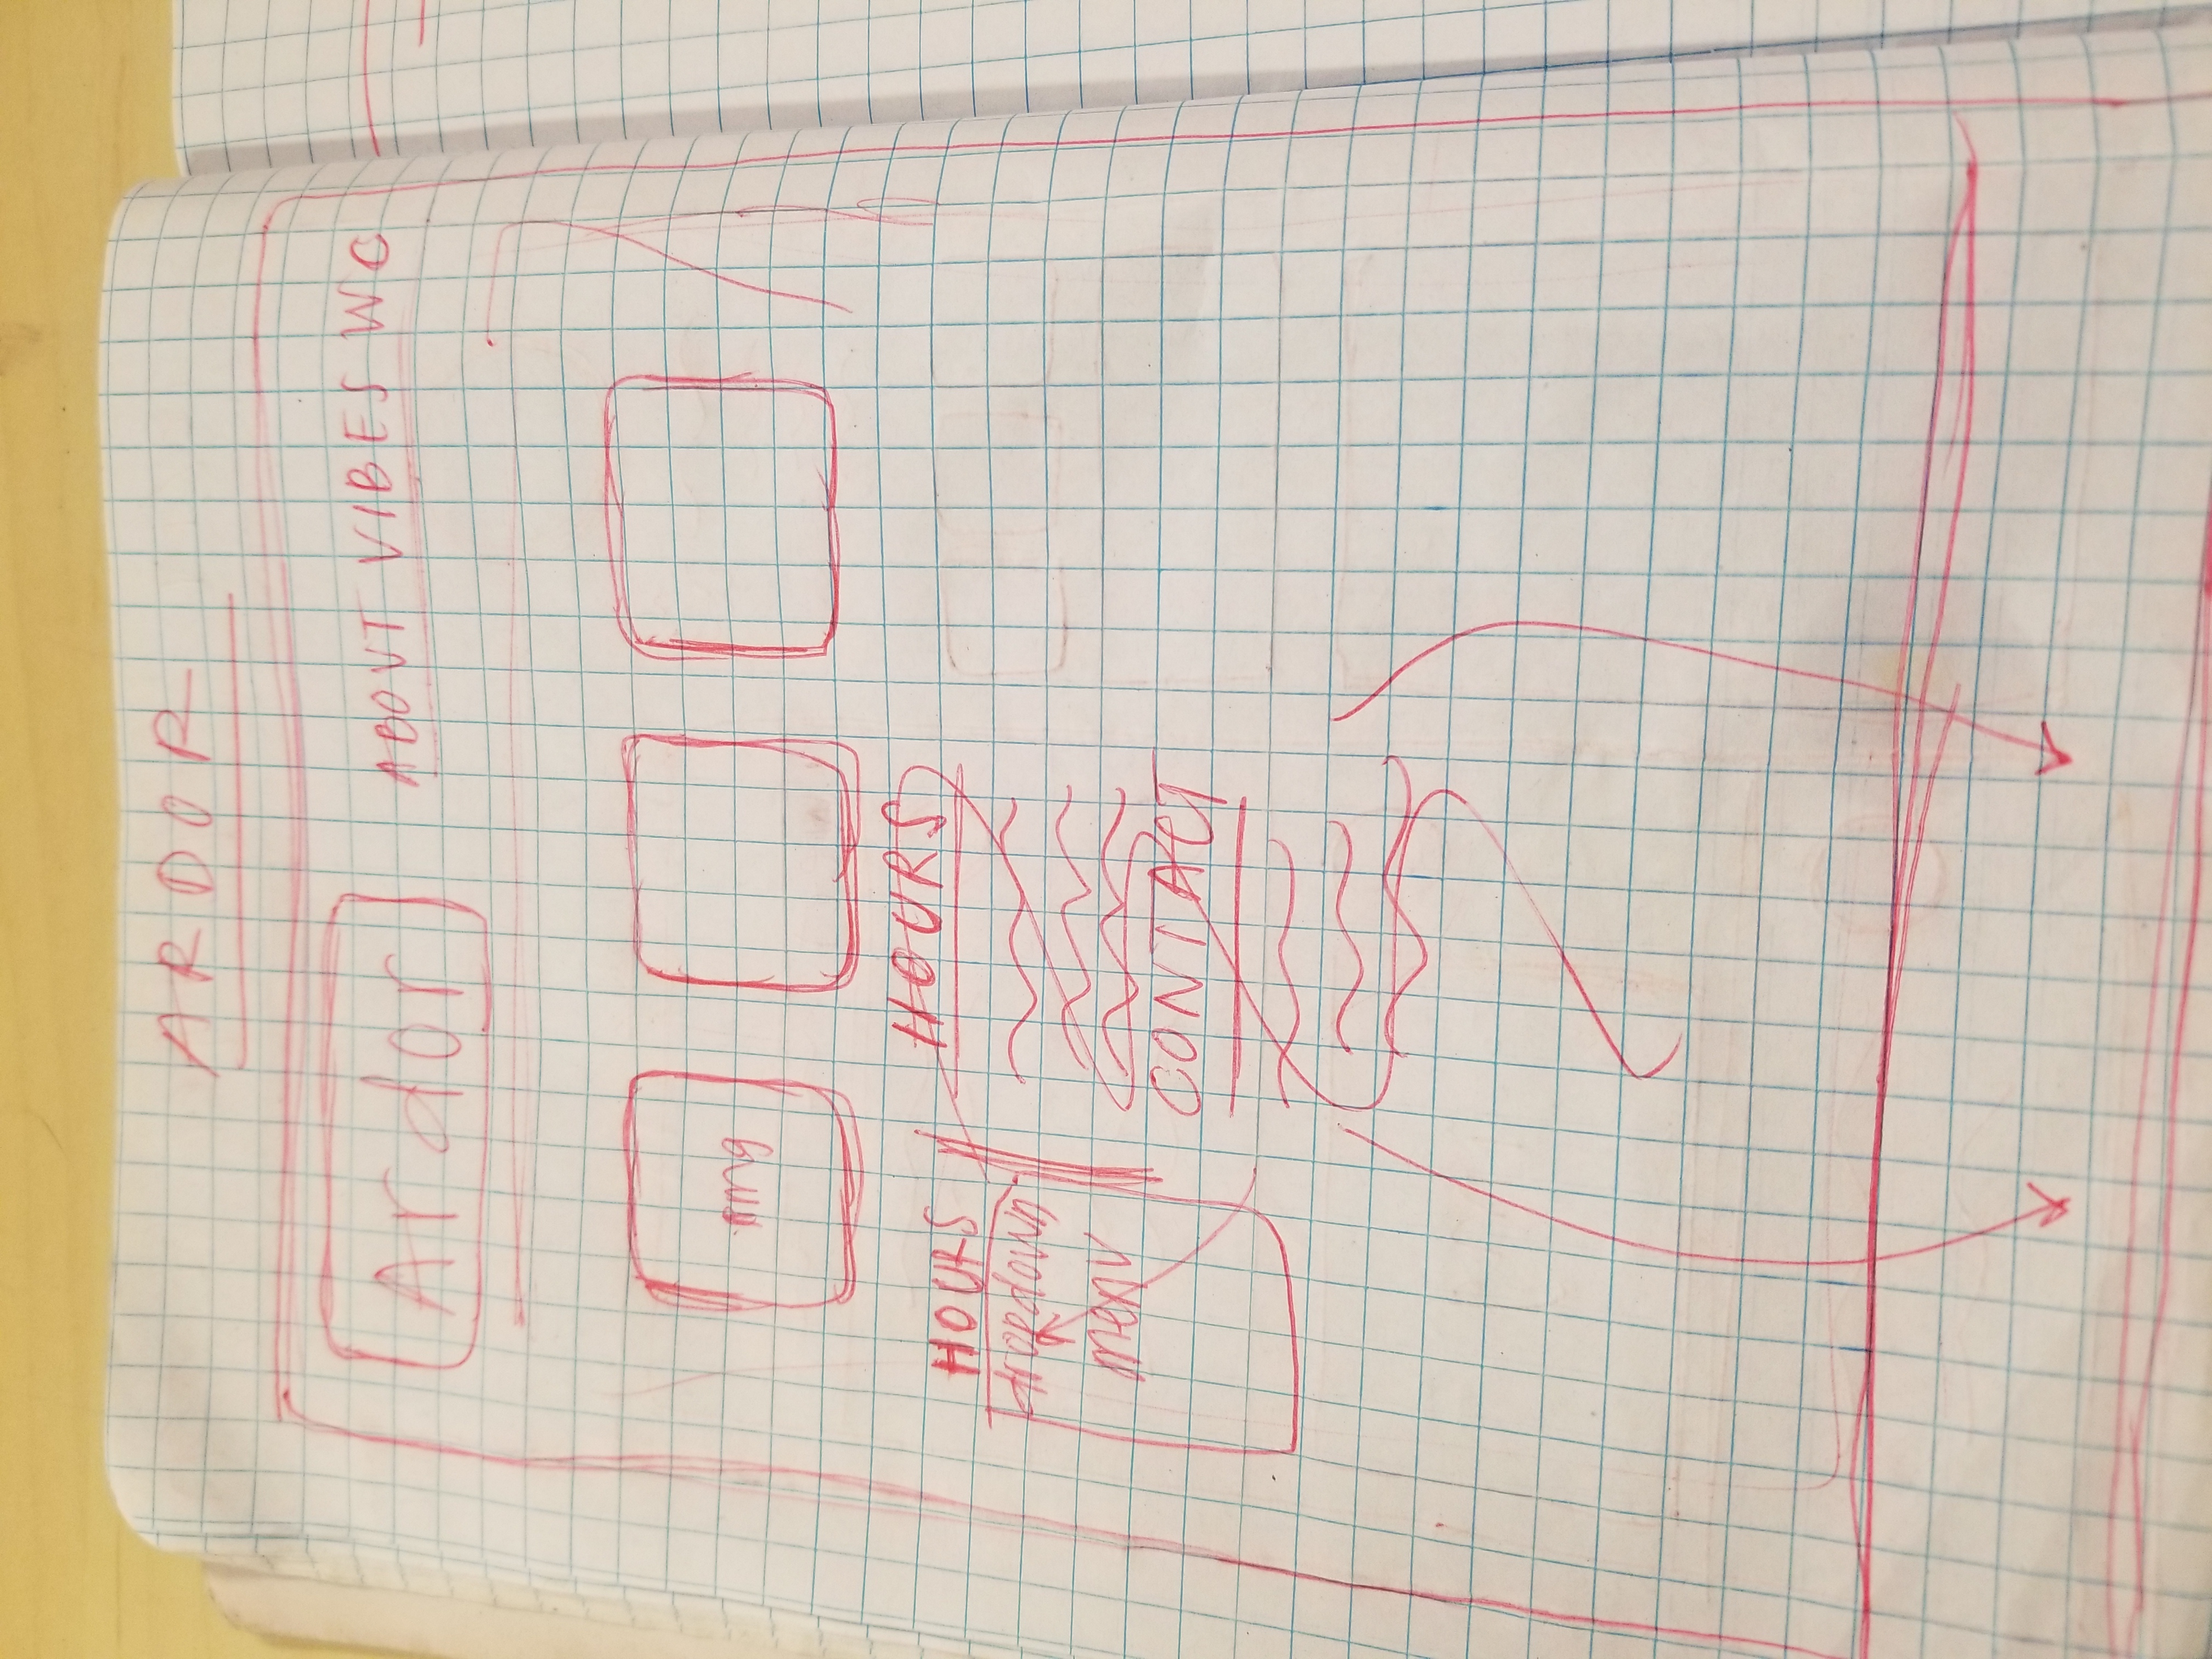 ARDOR
Ardor
ABOUT VIBES WC
img
HOURS
HOURS
dropdown
menu
CONTACT